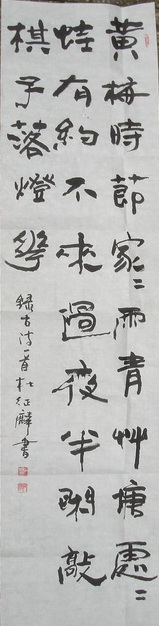 黄梅時節家〻雨青艸塘䖏〻
蛙有約不來過夜半閑敲
棋子落燈華
録古诗一首杜征麟書